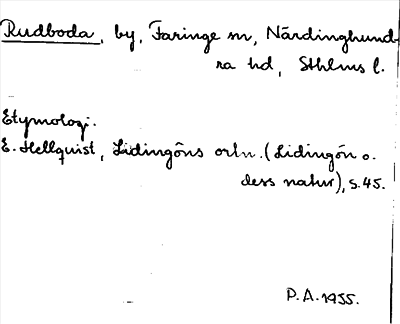 Rudboda, by, Faringe sn, Närdinghund-
ra hd, Sthlms l.
Etymologi.
E. Hellquist, Lidingöns ortn. (Lidingön o.
dess natur), s. 45.
P.A. 1955.